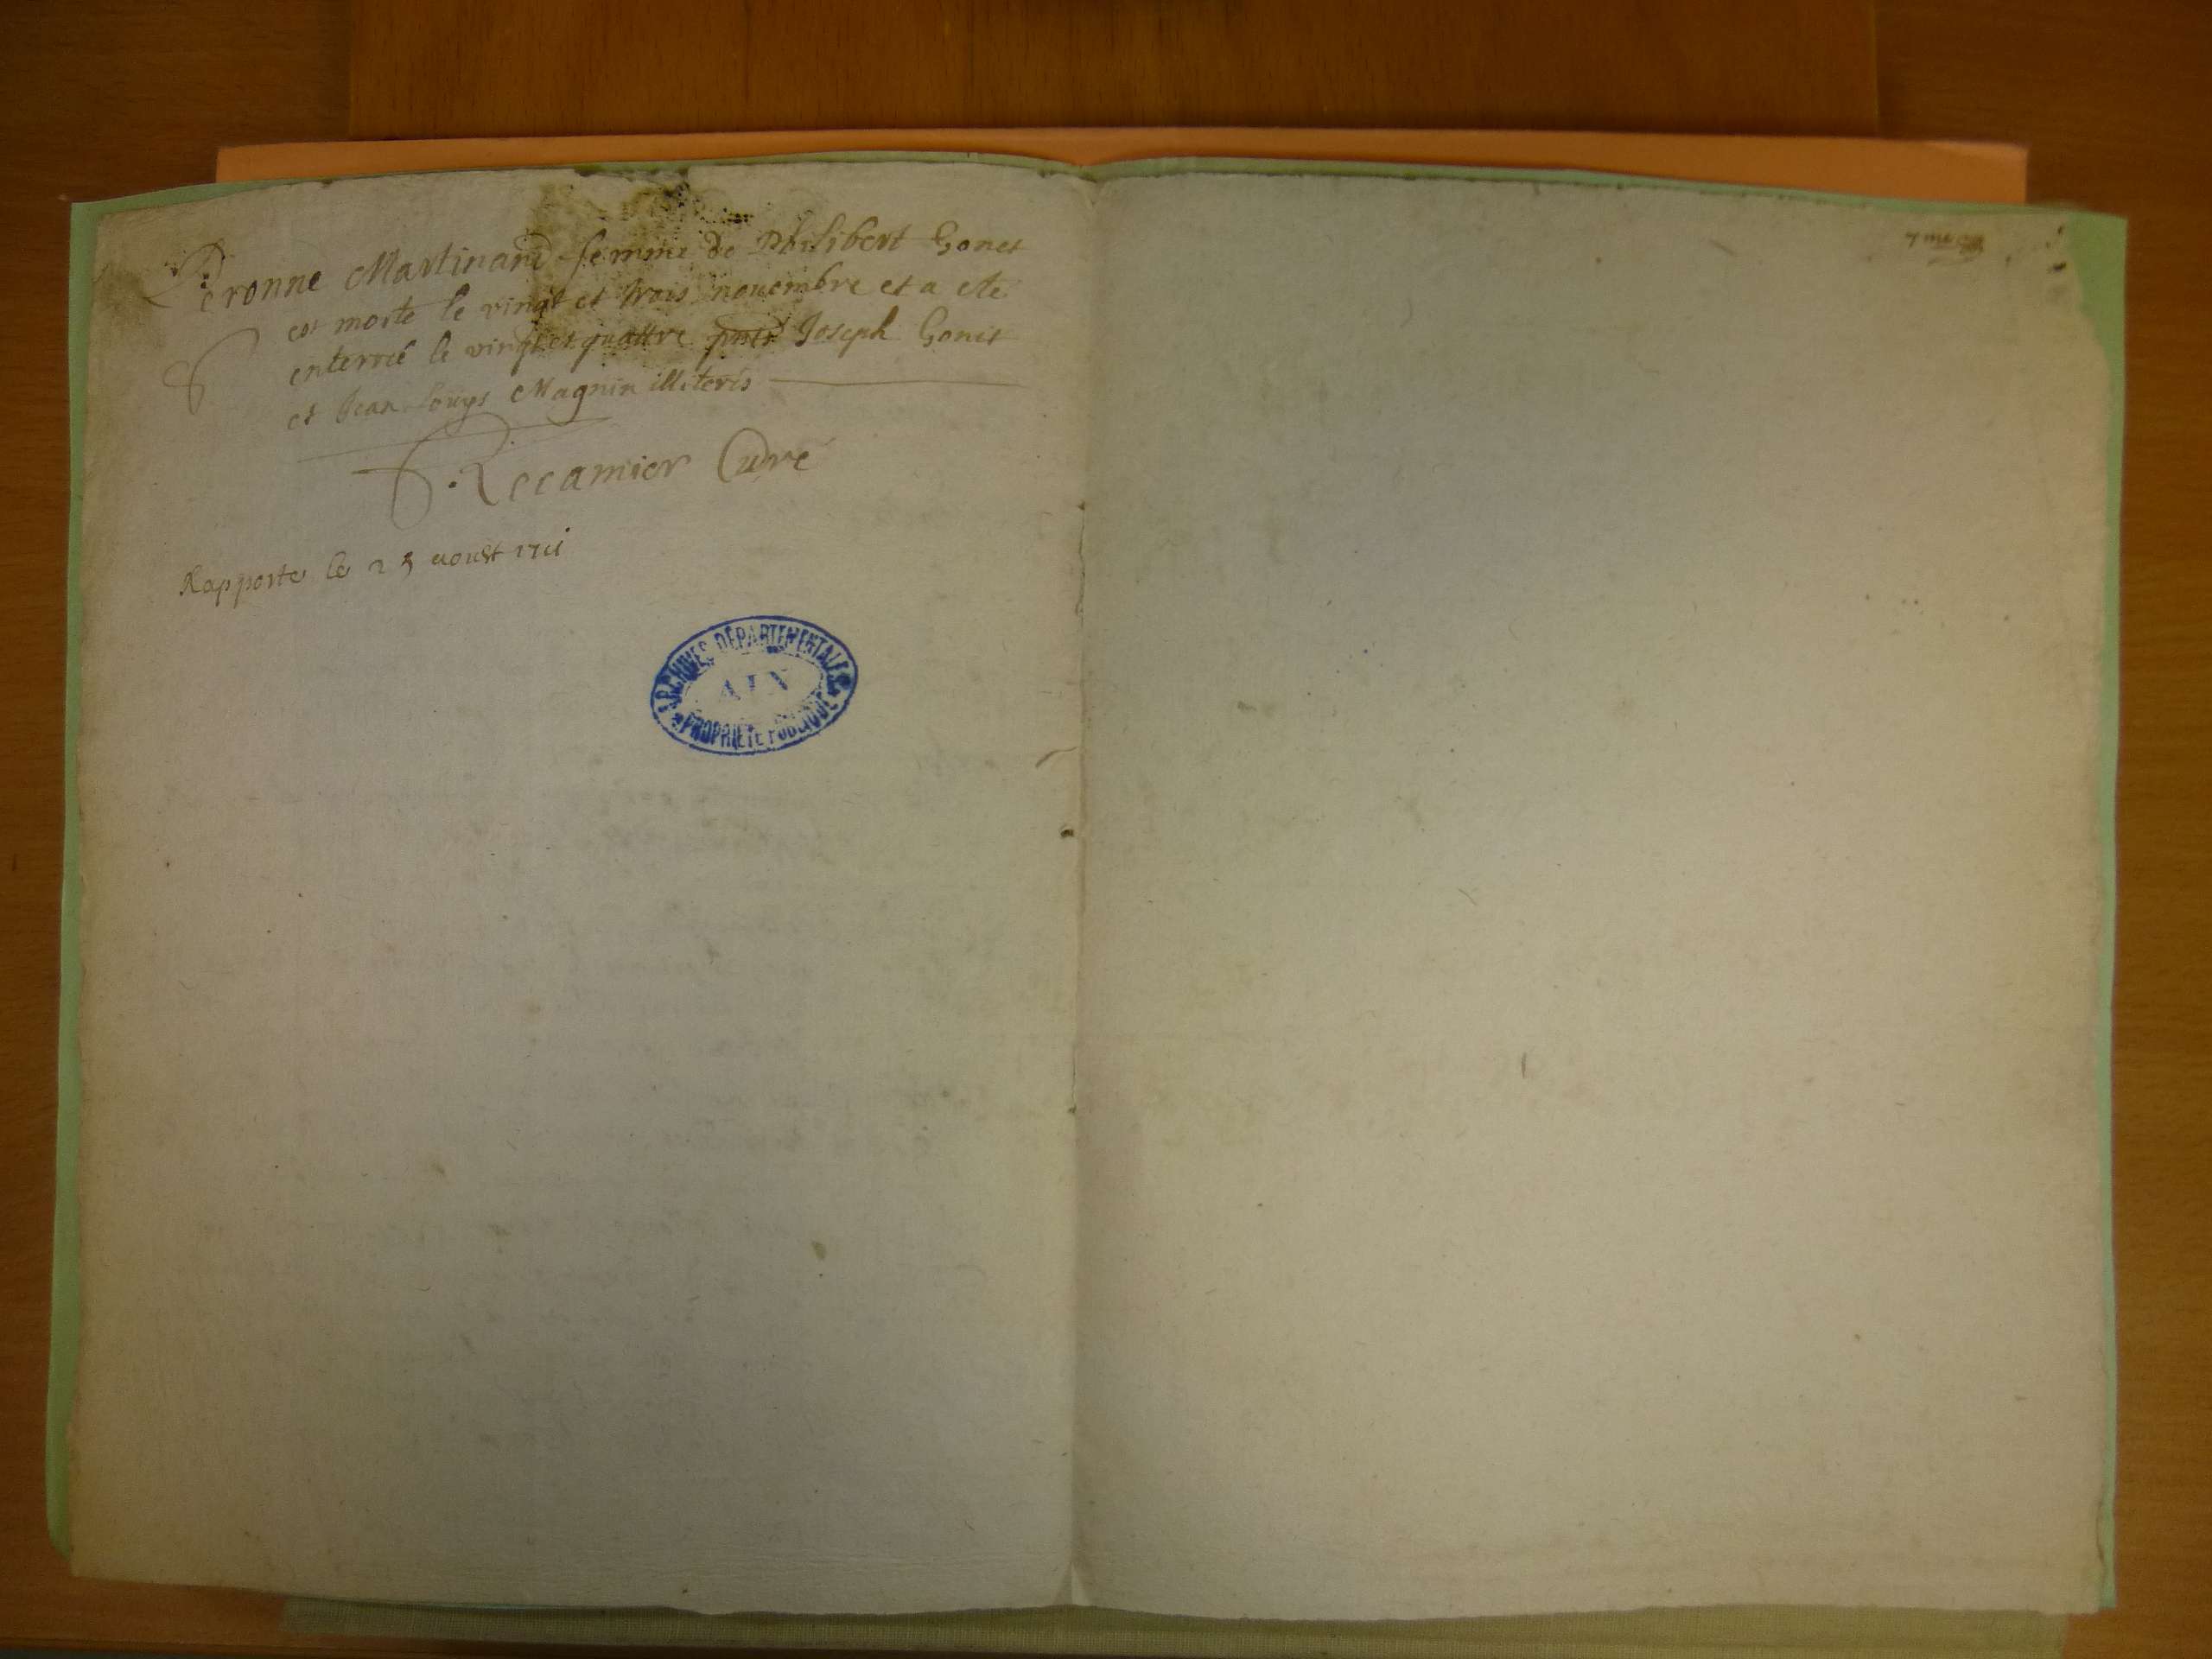 Peronne Martinand femme de Philibert Gonet
est morte le vingt et trois nouembre et a ete
enterreé le vingt et quattre pnts Joseph Gonet
et Jean Louys Magnin illiterés
Recamier Curé
Rapporte le 25 aoust
ARCHIVES DÉPARTEMENTALES
AIN
PROPRIÉTÉ PUBLIQUE